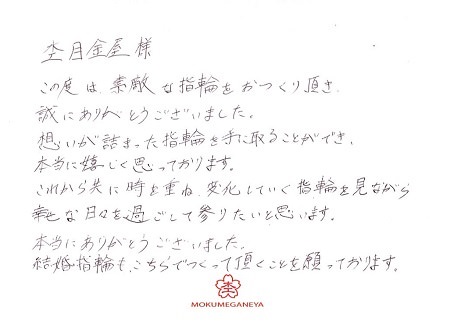 杢目金屋 様
この度は、素敵な指輪をおつくり頂き
誠にありがとうございました。
想いが詰まった指輪を手に取ることができ、
本当に嬉しく思っております。
これから共に時を重ね、変化していく指輪を見ながら
幸せな日々を過ごして参りたいと思います。
本当にありがとうございました。
結婚指輪も、こちらでつくって頂くことを願っております。
杢
MOKUMEGANEYA